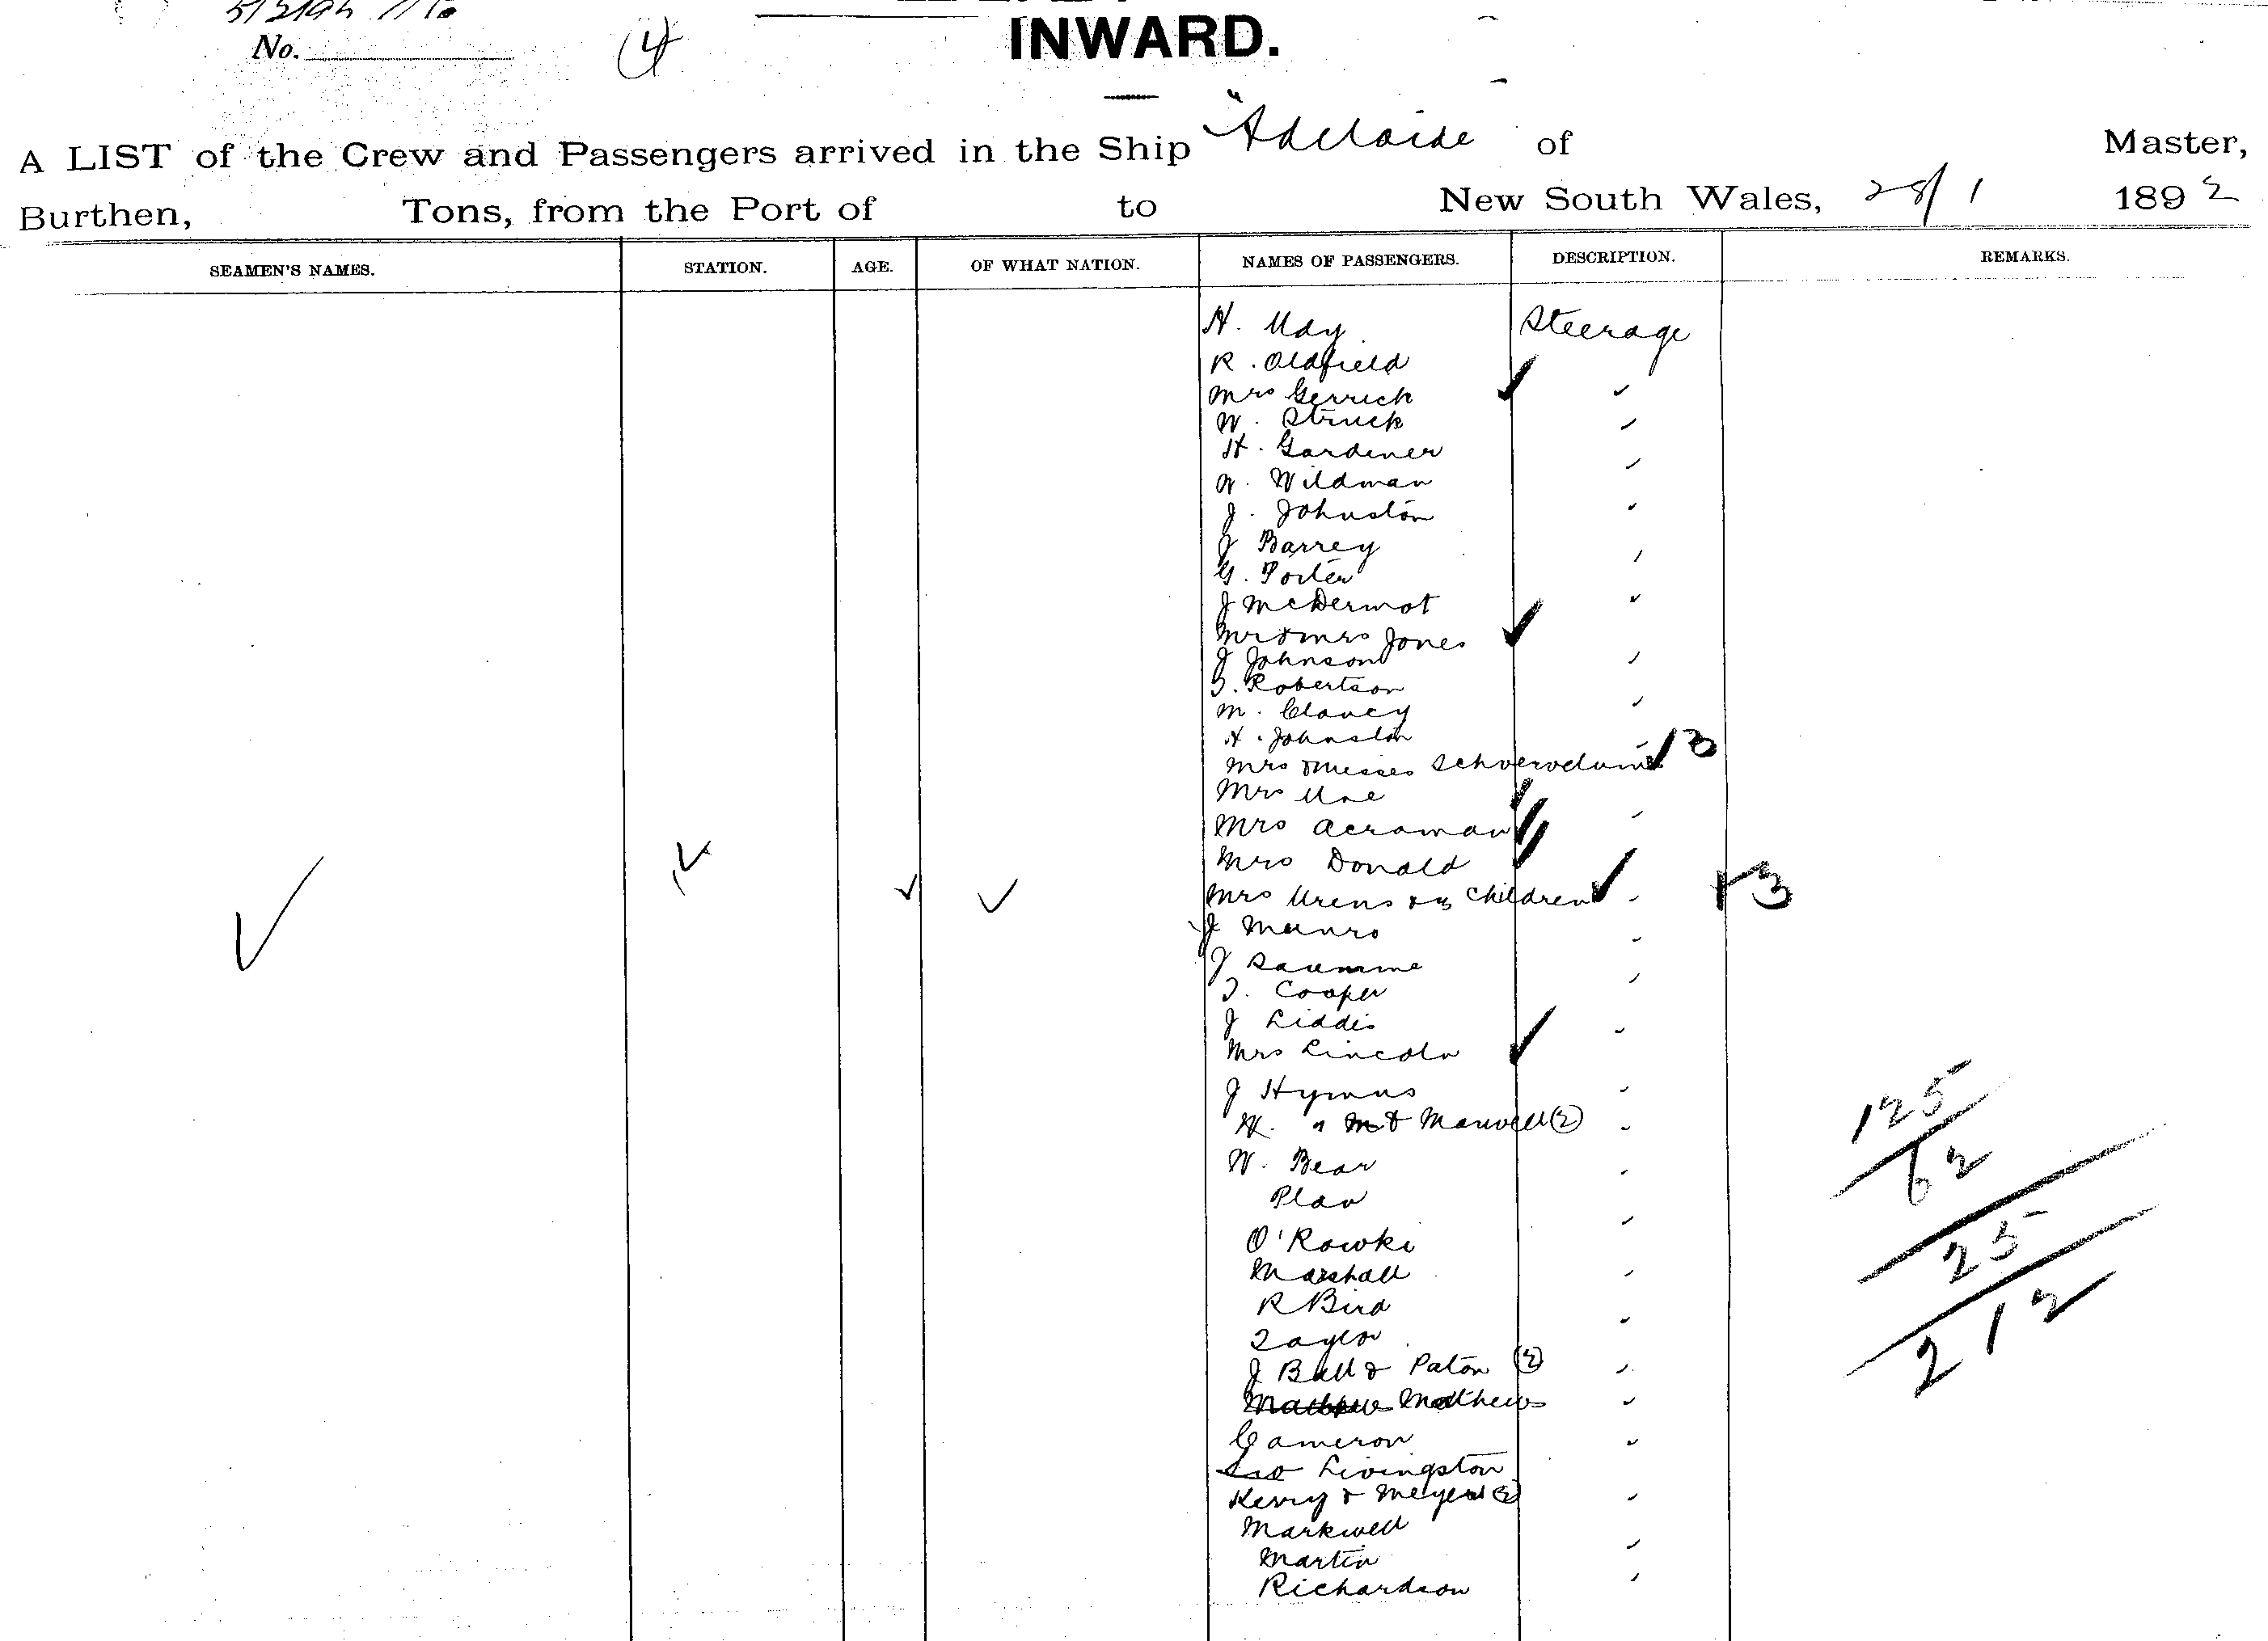 No.
4
INWARD.
A LIST of the Crew and Passengers arrived in the Ship "Adelaide" of Master,
Burthen, Tons, from the Port of to New South Wales, 28/1 1892
SEAMEN'S NAMES. STATION. AGE. OF WHAT NATION. NAMES OF PASSENGERS. DESCRIPTION. REMARKS.
H. May Steerage
R. Oldfield
Mrs Gerrick
W. Struck
H. Gardener
W. Wildman
J. Johnston
J Barrey
G. Porter
J McDermot
Mr & Mrs Jones
J Johnson
T. Robertson
M. Clancy
H. Johnston
Mrs & Misses 3
Mrs
Mrs Acraman
Mrs Donald
Mrs Urens & 3 Children 3
J Munro
J
T. Cooper
J Liddis
Mrs Lincoln
J Hymus
H. " & Maxwell (2)
W. Bear
Plan
O'Rowki
Marshall
R Bird
Taylor
J Ball & Paton (2)
Mathews
Cameron
Livingston
Kerry & Meyers (2)
Markwell
Martin
Richardson
125
62
25
212